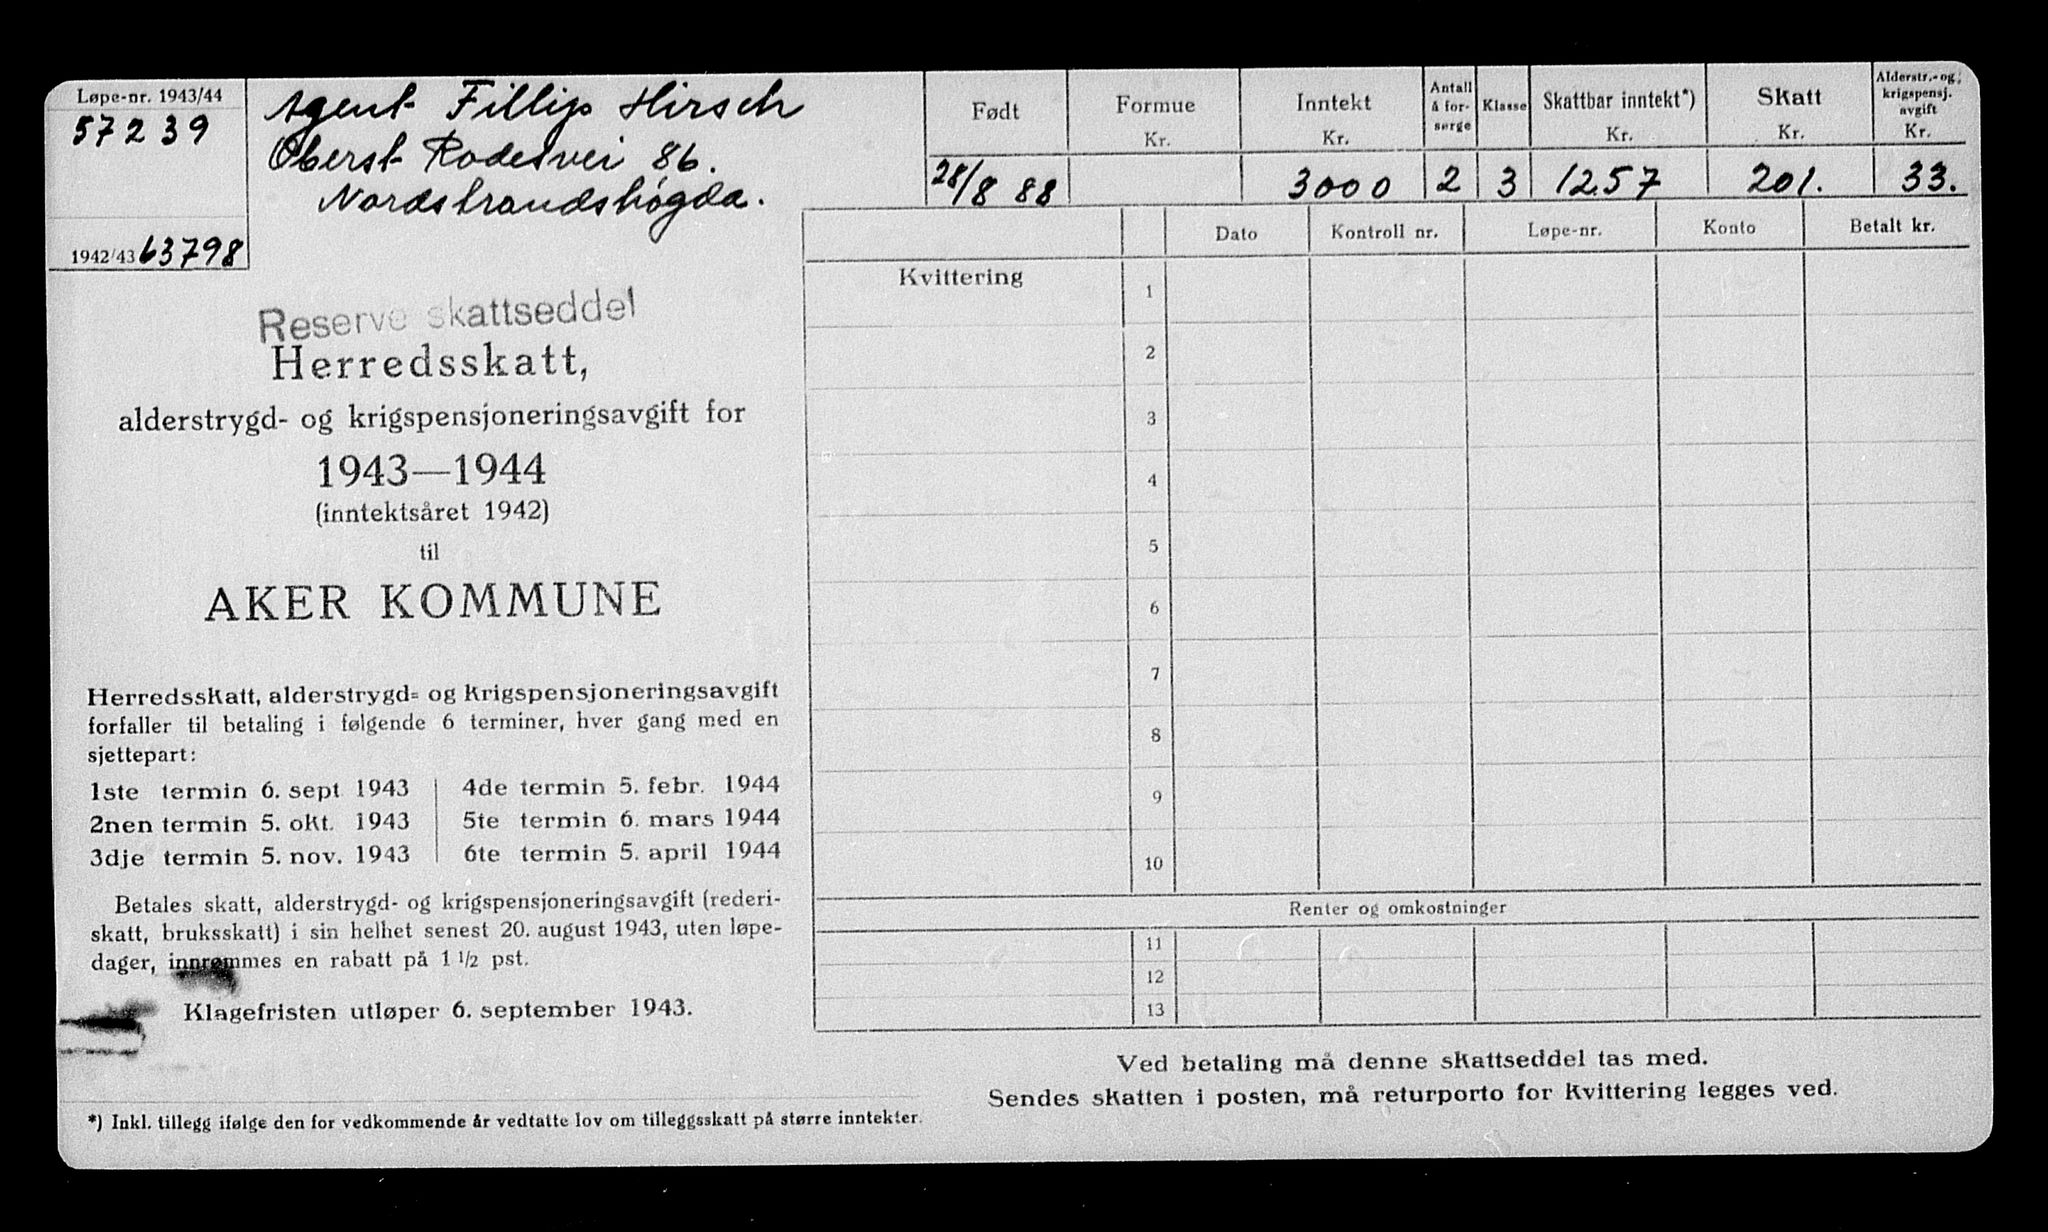 Løpe-nr. 1943/44
57239
1942/43 63798
Agent Fillip Hirsch
Oberst Rodesvei 86.
Nordstrandshøgda.
Født
28/8 88
Formue
Kr.
Inntekt
Kr.
3000
Antall
å for-
sørge
2
Klasse
3
Skattbar inntekt*)
Kr.
1257
Skatt
Kr.
201.
Alderstr.- og
krigspensj.
avgift
Kr.
33.
Reserve skattseddel
Herredsskatt,
alderstrygd- og krigspensjoneringsavgift for
1943—1944
(inntektsåret 1942)
til
AKER KOMMUNE
Herredsskatt, alderstrygd- og krigspensjoneringsavgift
forfaller til betaling i følgende 6 terminer, hver gang med en
sjettepart:
1ste termin 6. sept 1943
2nen termin 5. okt. 1943
3dje termin 5. nov. 1943
4de termin 5. febr. 1944
5te termin 6. mars 1944
6te termin 5. april 1944
Betales skatt, alderstrygd- og krigspensjoneringsavgift (rederi-
skatt, bruksskatt) i sin helhet senest 20. august 1943, uten løpe-
dager, innrømmes en rabatt på 1 1/2 pst.
Klagefristen utløper 6. september 1943.
*) Inkl. tillegg ifølge den for vedkommende år vedtatte lov om tilleggsskatt på større inntekter.
Dato Kontroll nr. Løpe-nr. Konto Betalt kr.
Kvittering
1
2
3
4
5
6
7
8
9
10
Renter og omkostninger
11
12
13
Ved betaling må denne skattseddel tas med.
Sendes skatten i posten, må returporto for kvittering legges ved.